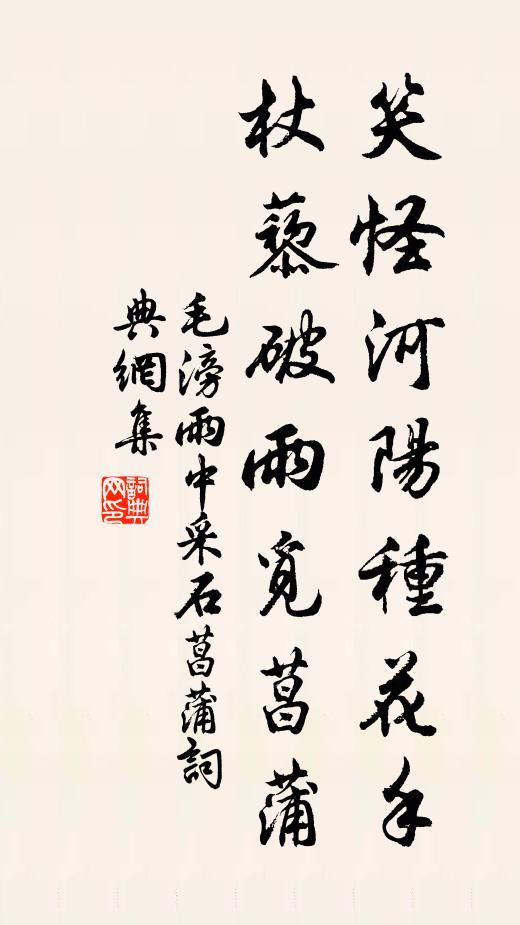 笑怪河陽種花手
杖藜破雨覓菖蒲
毛滂雨中采石菖蒲詞
典網集
詞典網印